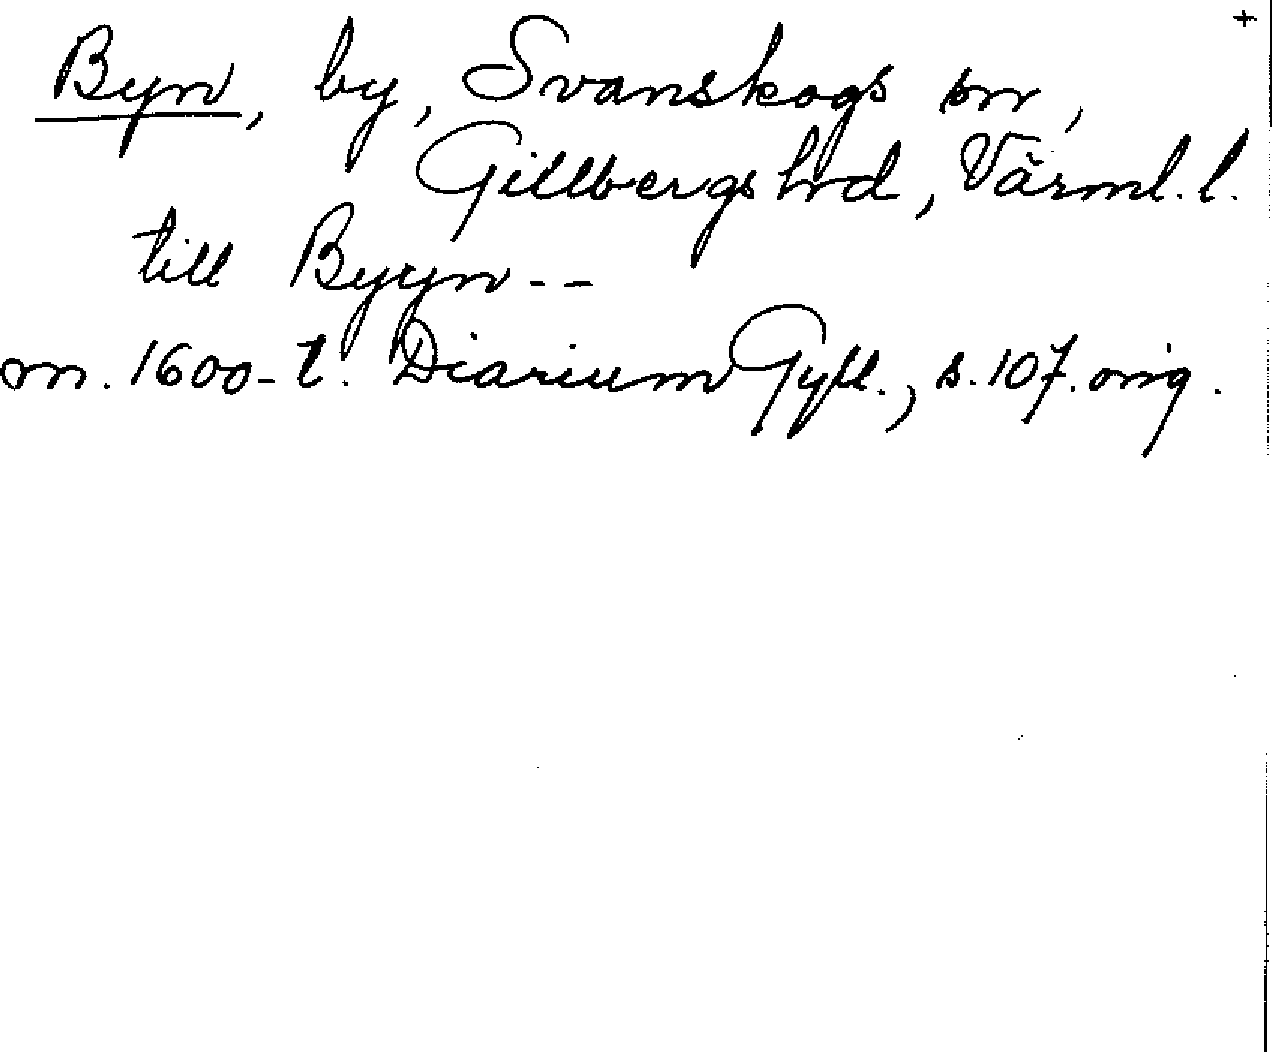 +
Byn, by, Svanskogs sn,
Gillbergs hrd, Värml. l.
till Byyn --
m. 1600-t. Diarium Gyll., s. 107. orig.